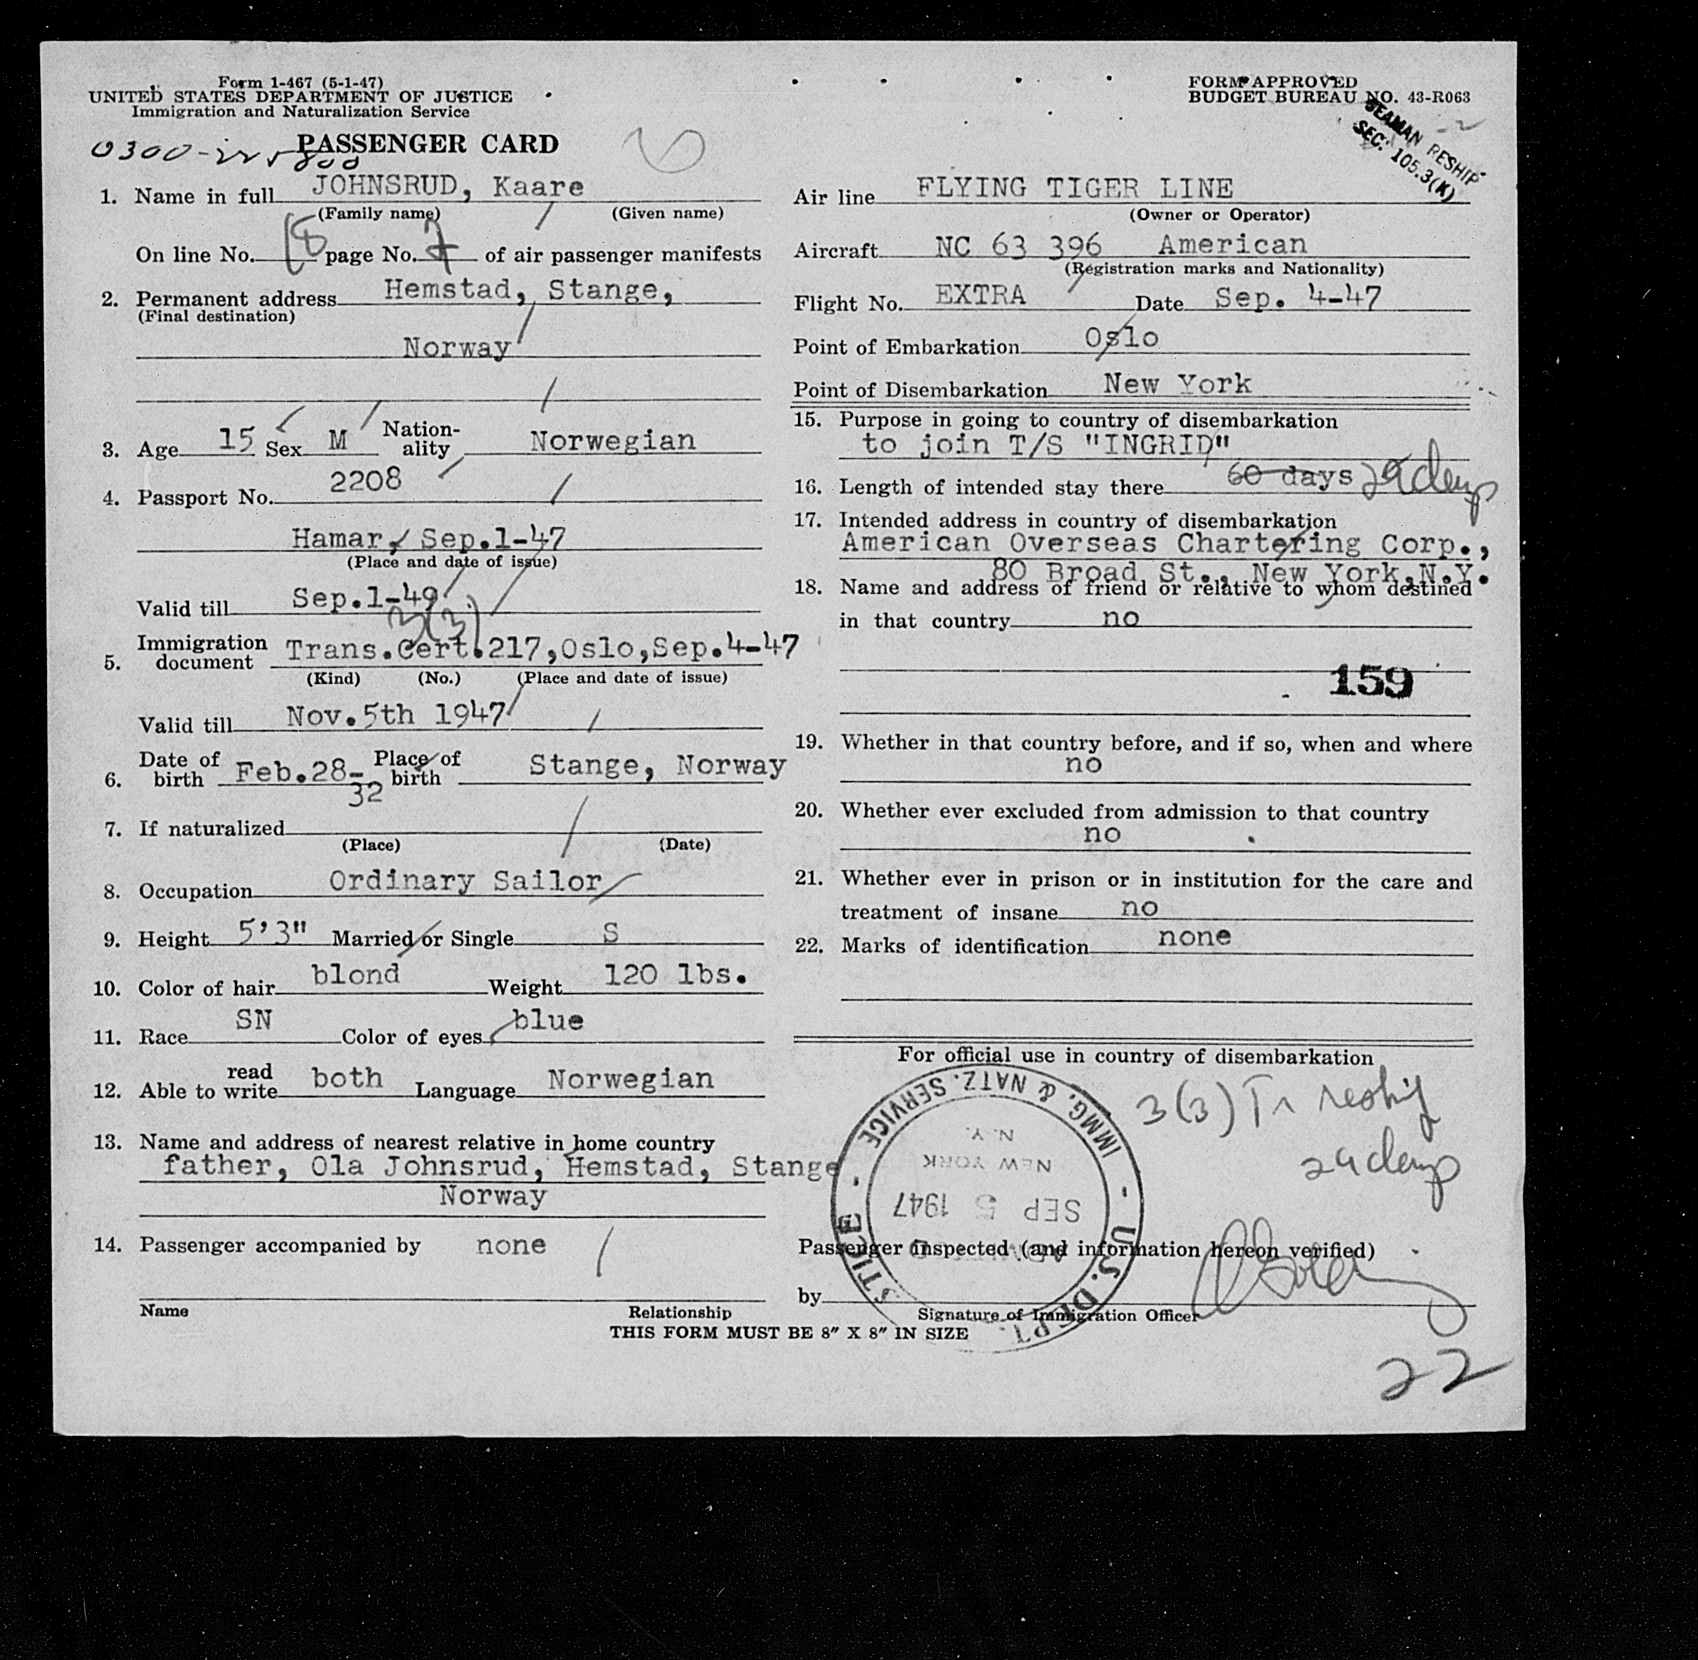 Form 1-467 (5-1-47)
UNITED STATES DEPARTMENT OF JUSTICE
Immigration and Naturalization Service
PASSENGER CARD
1. Name in full JOHNSRUD, Kaare
(Family name) (Given name)
On line No. 18 page No. 7 of air passenger manifests
2. Permanent address Hemstad, Stange,
(Final destination)
Norway
3. Age 15 Sex M Nation-ality Norwegian
4. Passport No. 2208
Hamar, Sep.1-47
(Place and date of issue)
Valid till Sep.1-49
3(3)
5. Immigration document Trans.Cert.217,Oslo,Sep.4-47
(Kind) (No.) (Place and date of issue)
Valid till Nov.5th 1947
6. Date of birth Feb.28-32 Place of birth Stange, Norway
7. If naturalized
(Place) (Date)
8. Occupation Ordinary Sailor
9. Height 5'3" Married or Single S
10. Color of hair blond Weight 120 lbs.
11. Race SN Color of eyes blue
12. Able to read write both Language Norwegian
13. Name and address of nearest relative in home country
father, Ola Johnsrud, Hemstad, Stange
Norway
14. Passenger accompanied by none
Name Relationship
FORM APPROVED
BUDGET BUREAU NO. 43-R063
SEAMAN RESHIP
SEC. 105.3(K)
Air line FLYING TIGER LINE
(Owner or Operator)
Aircraft NC 63 396 American
(Registration marks and Nationality)
Flight No. EXTRA Date Sep. 4-47
Point of Embarkation Oslo
Point of Disembarkation New York
15. Purpose in going to country of disembarkation
to join T/S "INGRID"
16. Length of intended stay there 60 days 29 days
17. Intended address in country of disembarkation
American Overseas Chartering Corp.,
80 Broad St., New York,N.Y.
18. Name and address of friend or relative to whom destined
in that country no
159
19. Whether in that country before, and if so, when and where
no
20. Whether ever excluded from admission to that country
no
21. Whether ever in prison or in institution for the care and
treatment of insane no
22. Marks of identification none
For official use in country of disembarkation
3(3) Tr reship
29 days
U.S. DEPT. JUSTICE - IMMG. & NATZ. SERVICE
NEW YORK N.Y.
SEP 5 1947
ADMITTED
Passenger inspected (and information hereon verified)
by
Signature of Immigration Officer
THIS FORM MUST BE 8" X 8" IN SIZE
22